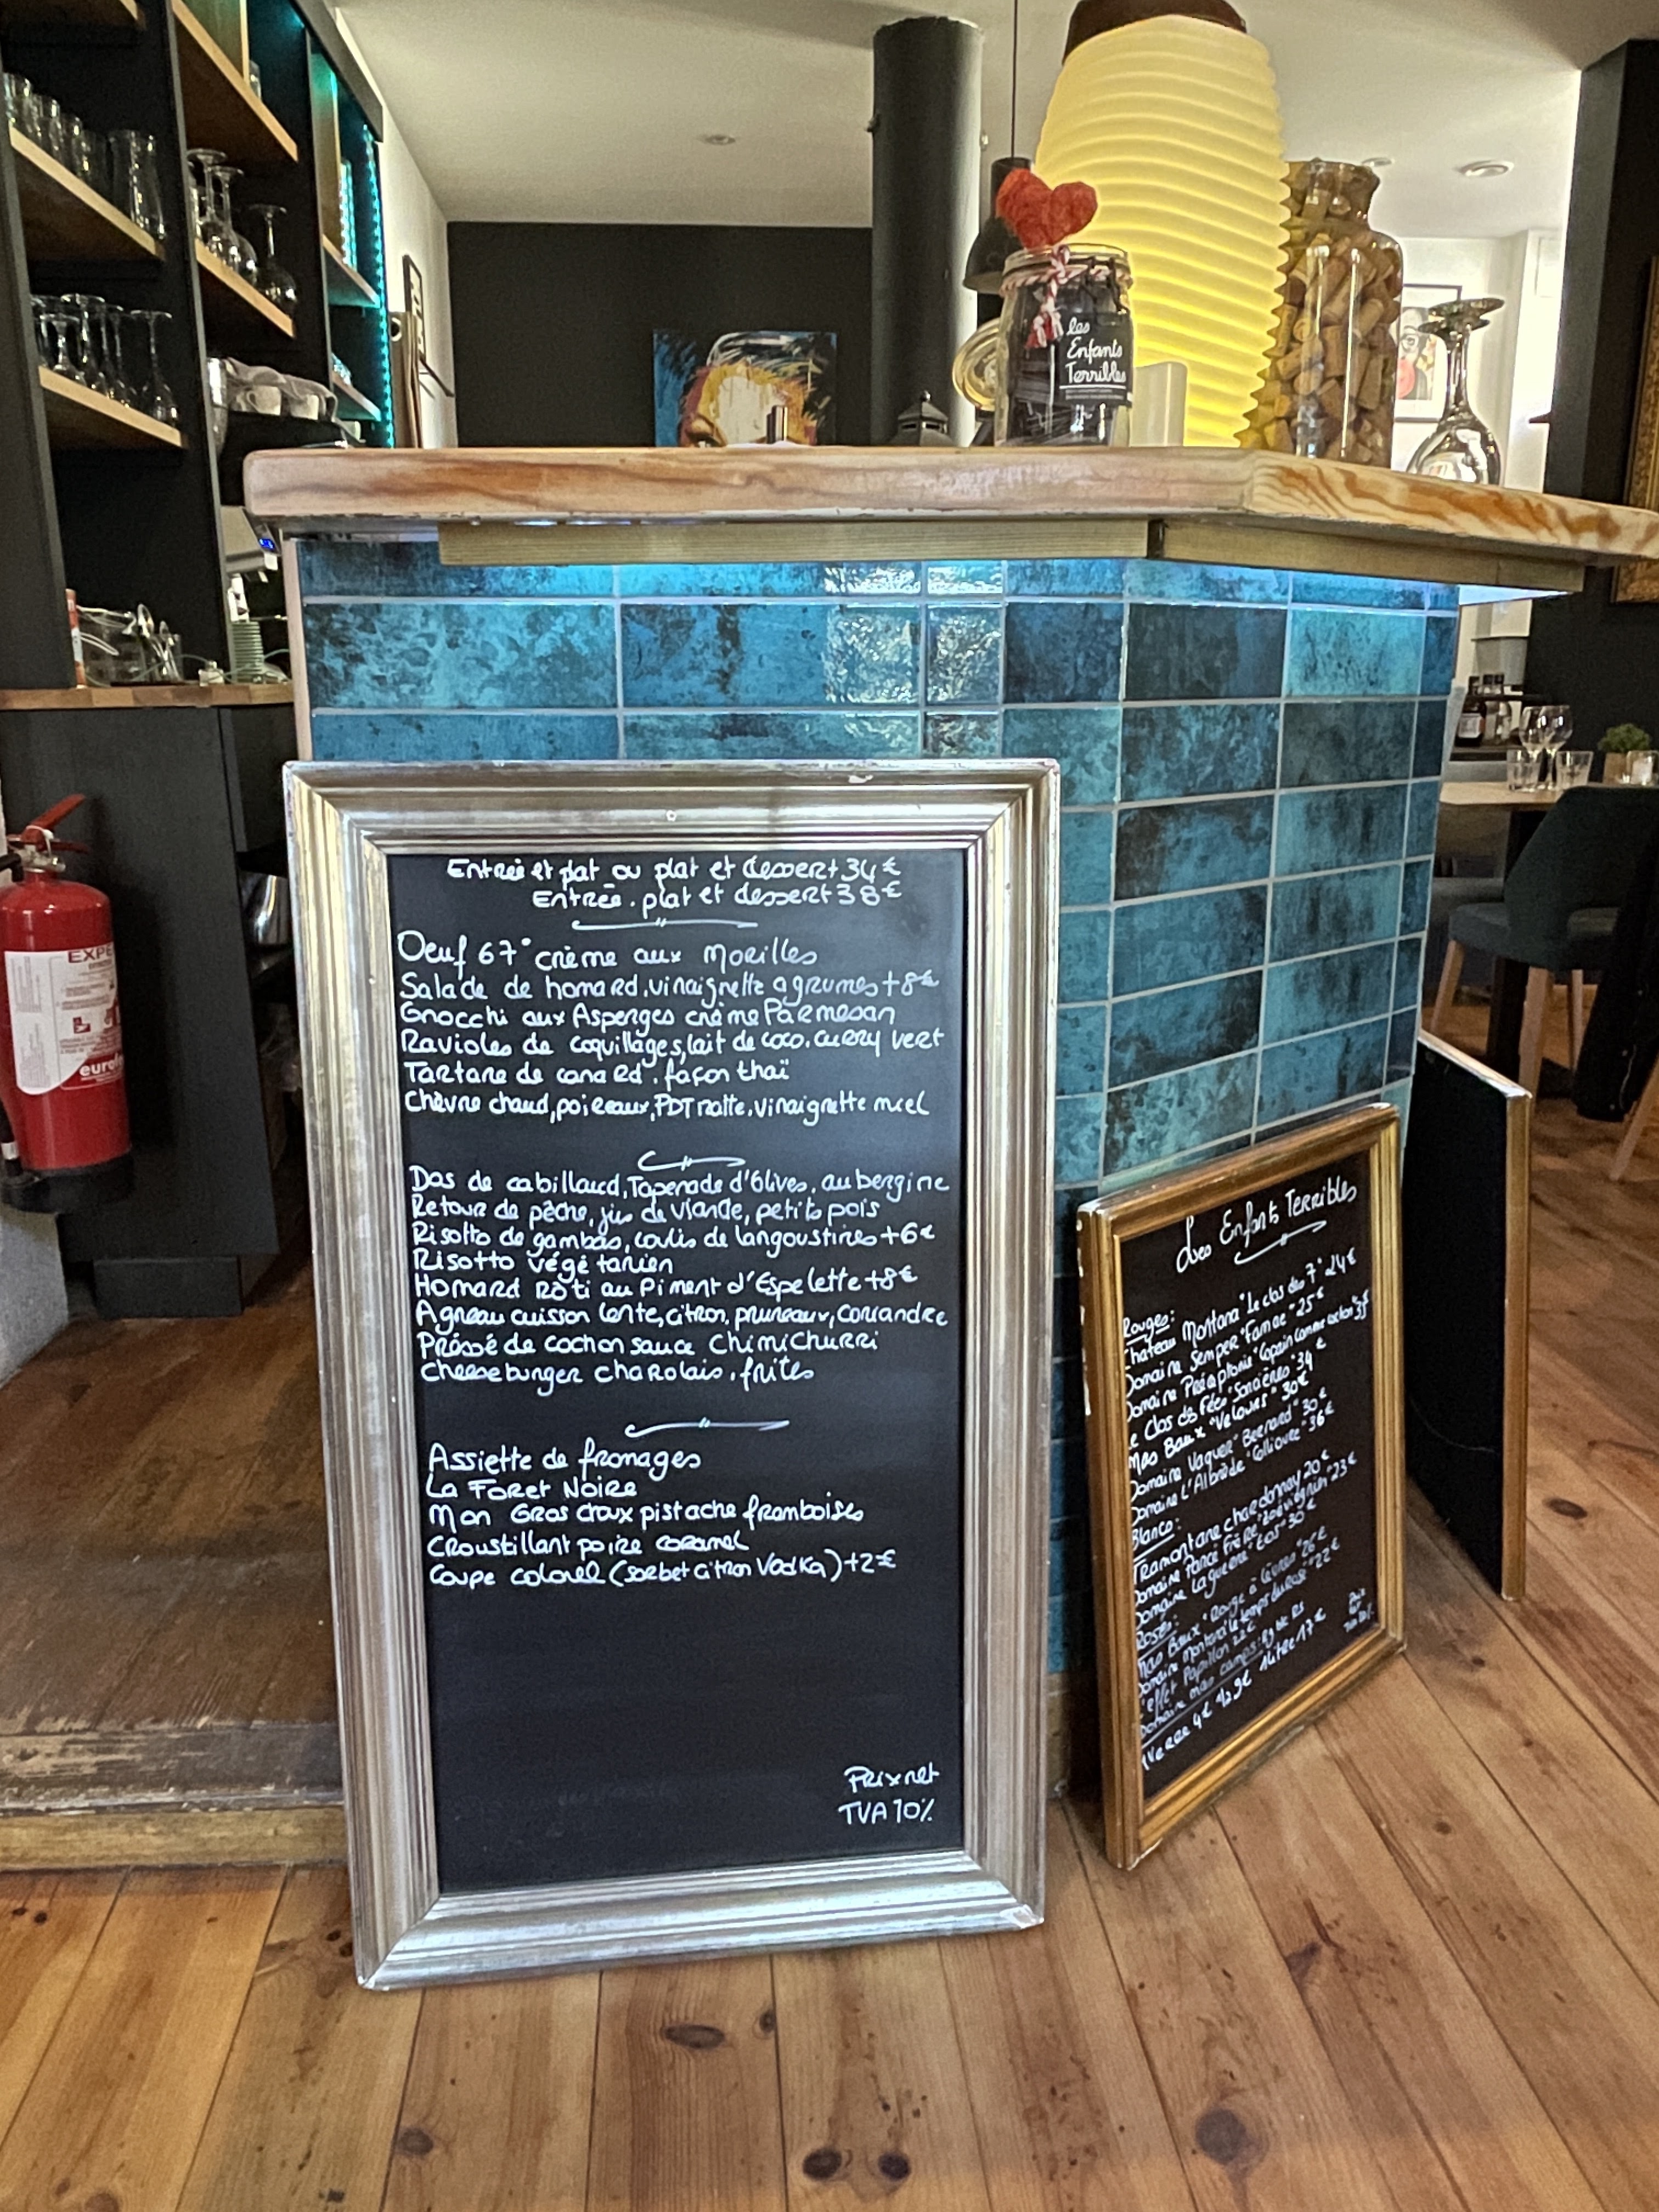 les
Enfants
Terribles
EXPE
eurof
Entrée et plat ou plat et dessert 34€
Entrée . plat et dessert 38€
Oeuf 67° crème aux Morilles
Salade de homard, vinaigrette agrumes +8€
Gnocchi aux Asperges crème Parmesan
Ravioles de coquillages, lait de coco. curry vert
Tartare de canard . façon thaï
Chèvre chaud, poireaux, PDT ratte, vinaigrette miel
Dos de cabillaud, Tapenade d'Olives, aubergine
Retour de pêche, jus de viande, petits pois
Risotto de gambas, coulis de langoustines +6€
Risotto végétarien
Homard Rôti au Piment d'Espelette +8€
Agneau cuisson lente, citron, pruneaux, coriandre
Préssé de cochon sauce Chimichurri
Cheeseburger charolais, frites
Assiette de fromages
La Foret Noire
Mon Gros choux pistache framboises
Croustillant poire caramel
Coupe colonel (sorbet citron Vodka) +2€
Prix net
TVA 10%
Les Enfants Terribles
Rouges:
Chateau Montana "Le clos du 7" 24€
Domaine Semper "Famae" 25€
Domaine "Copain comme cochon"
Le Clos des Fées "Sorcières" 34€
Mas Baux "Velours" 30€
Domaine Vaquer "Bernard" 30€
Domaine L'Albrède "Collioure" 36€
Blancs:
Tramontane chardonnay 20€
Domaine Frère viognier 23€
Domaine Laguerre "EOS" 30€
Rosés:
Mas Baux "Rouge à lèvres" 26€
Domaine Montana "le temps du rosé" 22€
L'effet Papillon 22€
Domaine mas camps: Rg Blc Rs
Verre 4€ 1/2 9€ 1 Litre 17€
Prix
Net
TVA